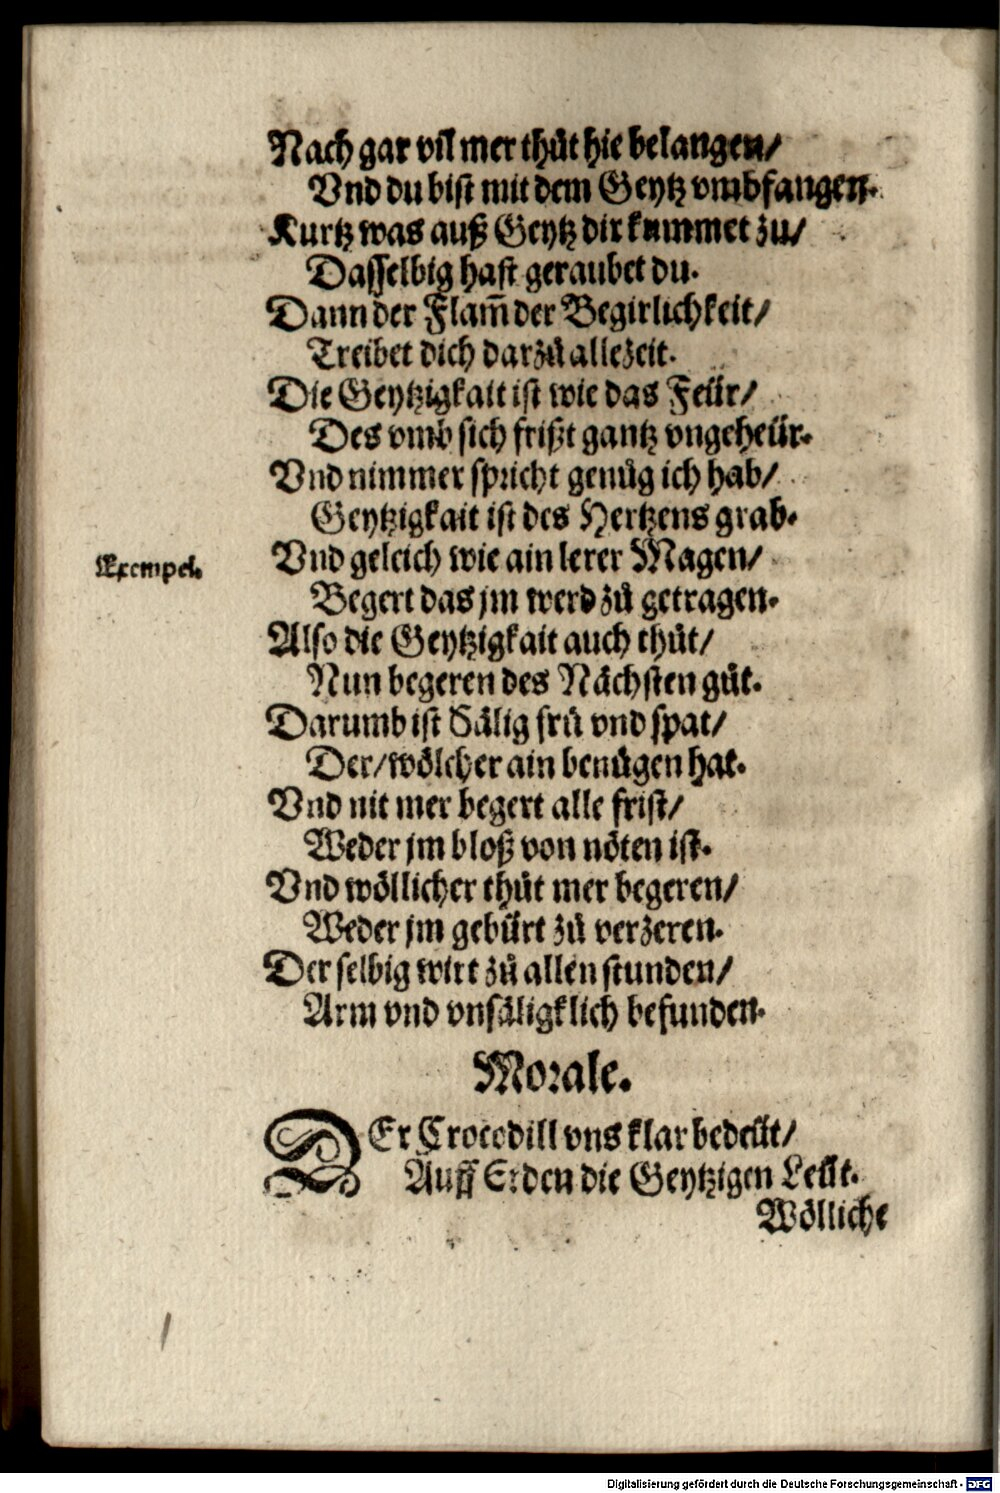 Nach gar vil mer thůt hie belangen/
Vnd du bist mit dem Geytz vmbfangen.
Kurtz was auß Geytz dir kummet zu/
Dasselbig hast geraubet du.
Dann der Flam̄ der Begirlichkeit/
Treibet dich darzů allezeit.
Die Geytzigkait ist wie das Feür/
Des vmb sich frißt gantz vngeheür.
Vnd nimmer spricht genůg ich hab/
Geytzigkait ist des Hertzens grab.
Exempel.
Vnd geleich wie ain lerer Magen/
Begert das jm werd zů getragen.
Also die Geytzigkait auch thůt/
Nun begeren des Nächsten gůt.
Darumb ist Sälig frů vnd spat/
Der/wölcher ain benůgen hat.
Vnd nit mer begert alle frist/
Weder jm bloß von nöten ist.
Vnd wöllicher thůt mer begeren/
Weder jm gebürt zů verzeren.
Der selbig wirt zů allen stunden/
Arm vnd vnsäligklich befunden.
Morale.
DEr Crocodill vns klar bedeüt/
Auff Erden die Geytzigen Leüt.
Wölliche
Digitalisierung gefördert durch die Deutsche Forschungsgemeinschaft - DFG